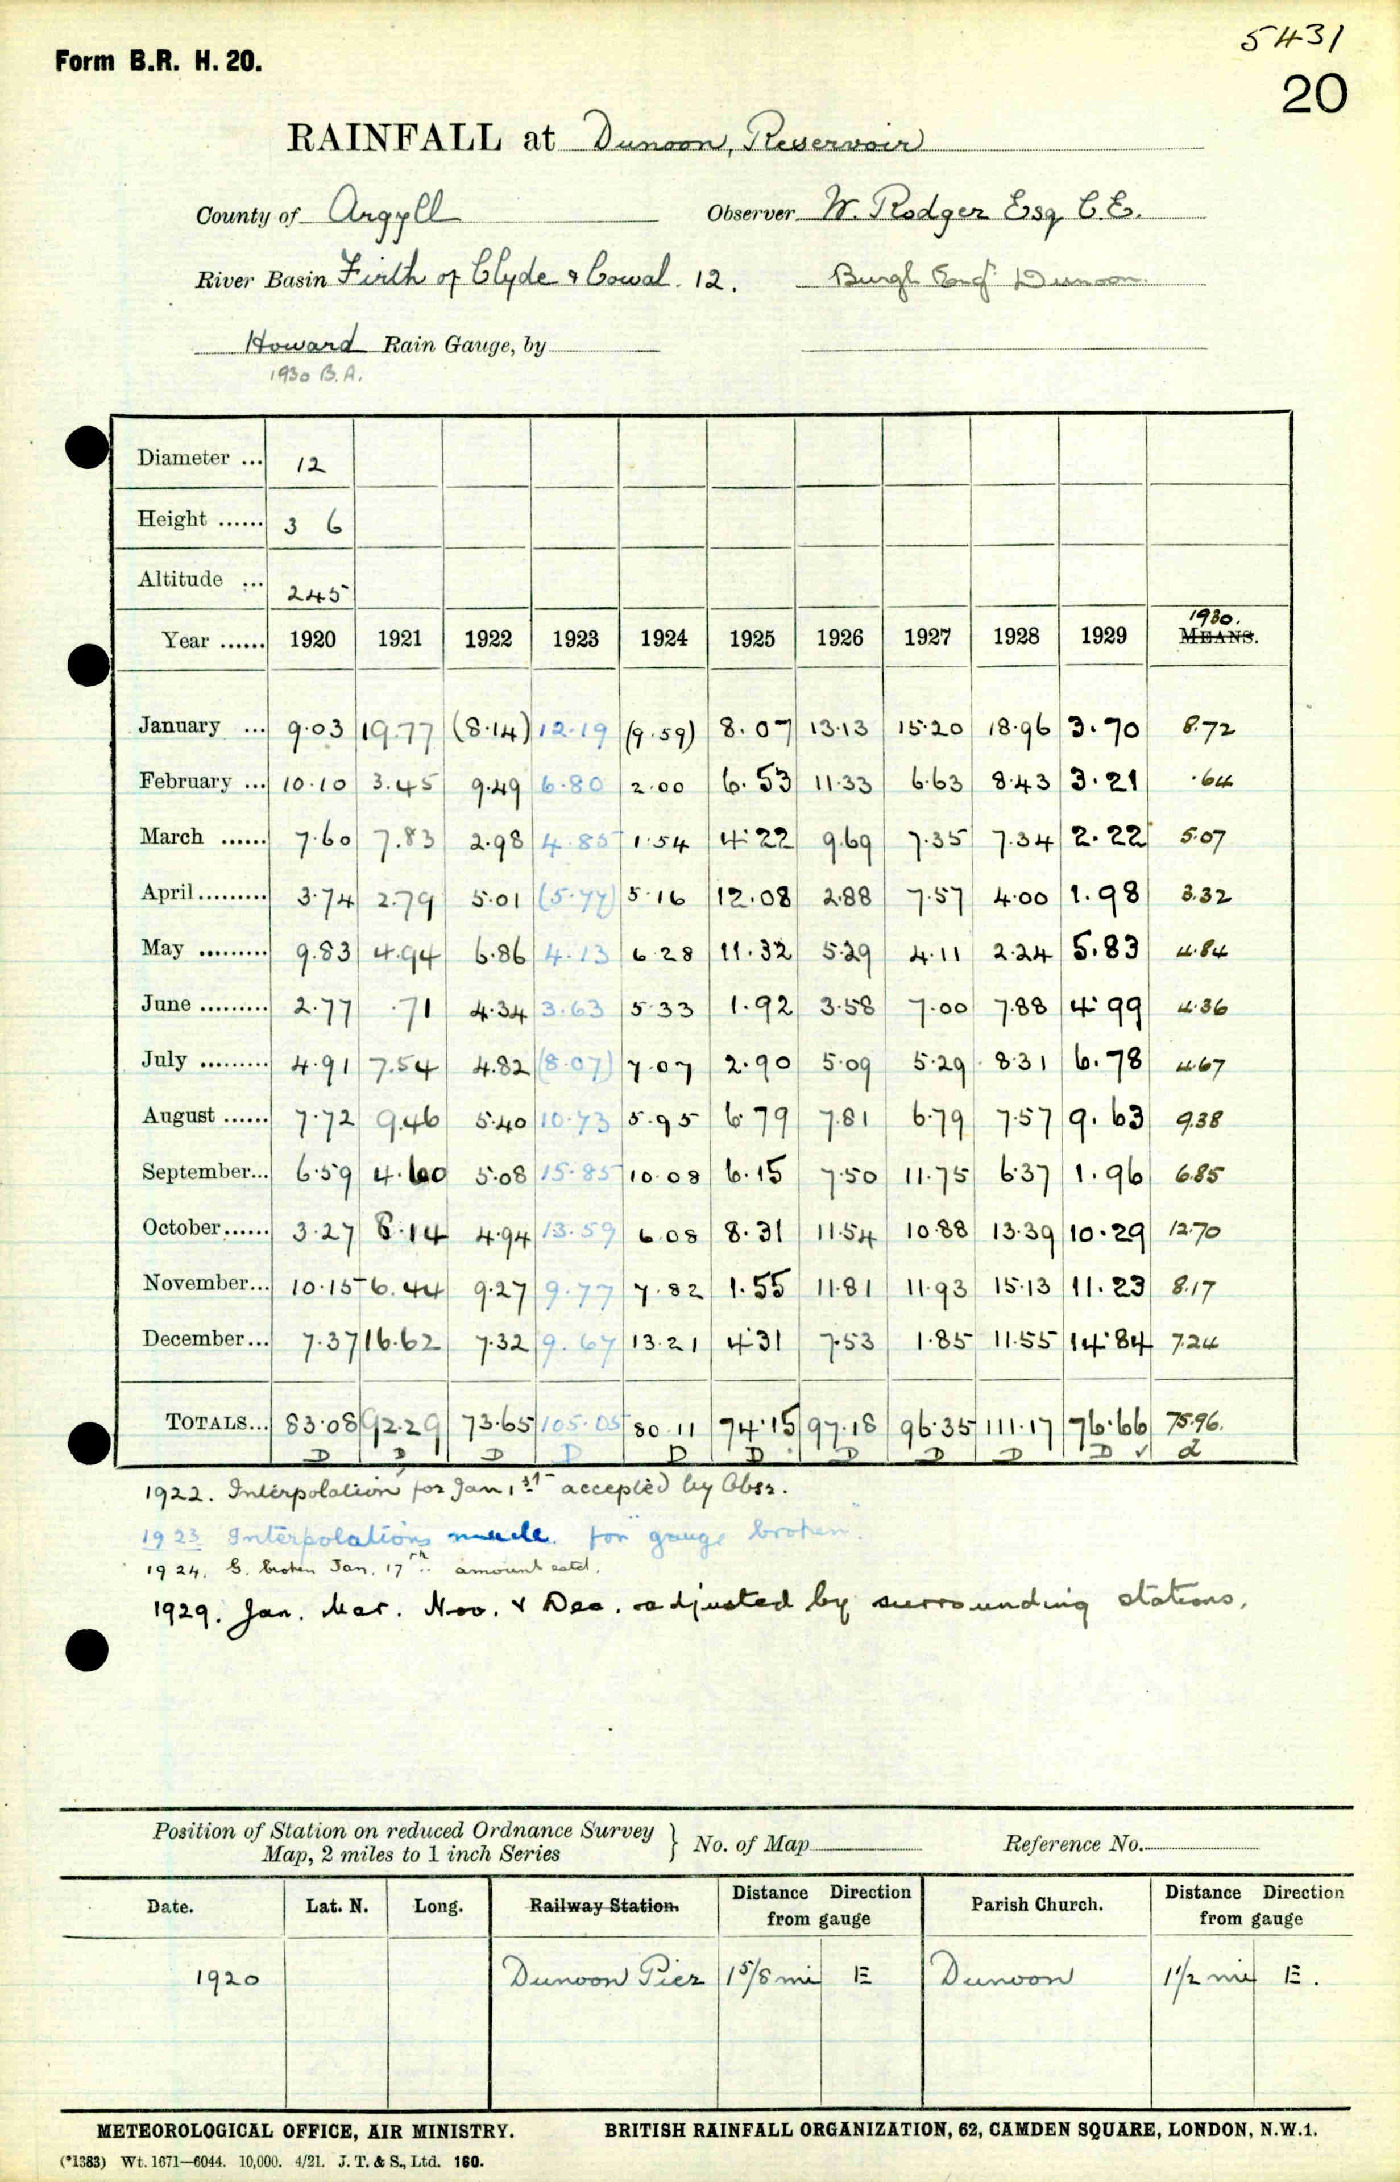 5431
Form B.R. H. 20.
20
RAINFALL at Dunoon, Reservoir
County of Argyll Observer W. Rodger Esq C.E.
River Basin Firth of Clyde & Cowal. 12. Burgh Engr Dunoon
Howard Rain Gauge, by
1930 B.A.
Diameter ... 12
Height ...... 3 6
Altitude ... 245
Year ...... 1920 1921 1922 1923 1924 1925 1926 1927 1928 1929 1930. MEANS.
January ... 9.03 19.77 (8.14) 12.19 (9.59) 8.07 13.13 15.20 18.96 3.70 8.72
February ... 10.10 3.45 9.49 6.80 2.00 6.53 11.33 6.63 8.43 3.21 .64
March ...... 7.60 7.83 2.98 4.85 1.54 4.22 9.69 7.35 7.34 2.22 5.07
April ......... 3.74 2.79 5.01 (5.77) 5.16 12.08 2.88 7.57 4.00 1.98 3.32
May ......... 9.83 4.94 6.86 4.13 6.28 11.32 5.29 4.11 2.24 5.83 4.84
June ......... 2.77 .71 4.34 3.63 5.33 1.92 3.58 7.00 7.88 4.99 4.36
July ......... 4.91 7.54 4.82 (8.07) 7.07 2.90 5.09 5.29 8.31 6.78 4.67
August ...... 7.72 9.46 5.40 10.73 5.95 6.79 7.81 6.79 7.57 9.63 9.38
September... 6.59 4.60 5.08 15.85 10.08 6.15 7.50 11.75 6.37 1.96 6.85
October...... 3.27 8.14 4.94 13.59 6.08 8.31 11.54 10.88 13.39 10.29 12.70
November... 10.15 6.44 9.27 9.77 7.82 1.55 11.81 11.93 15.13 11.23 8.17
December... 7.37 16.62 7.32 9.67 13.21 4.31 7.53 1.85 11.55 14.84 7.24
TOTALS... 83.08 92.29 73.65 105.05 80.11 74.15 97.18 96.35 111.17 76.66 75.96.
D D D D D D D D D D ✓ d
1922. Interpolation for Jan 1st accepted by Obsr.
1923 Interpolations made for "gauge broken".
1924. G. broken Jan. 17th. amount estd.
1929. Jan. Mar. Nov. & Dec. adjusted by surrounding stations.
Position of Station on reduced Ordnance Survey } No. of Map Reference No.
Map, 2 miles to 1 inch Series
Date. Lat. N. Long. Railway Station. Distance Direction from gauge Parish Church. Distance Direction from gauge
1920 Dunoon Pier 1 5/8 mi E Dunoon 1 1/2 mi E.
METEOROLOGICAL OFFICE, AIR MINISTRY. BRITISH RAINFALL ORGANIZATION, 62, CAMDEN SQUARE, LONDON, N.W.1.
(*1383) Wt. 1671—6044. 10,000. 4/21. J. T. & S., Ltd. 160.